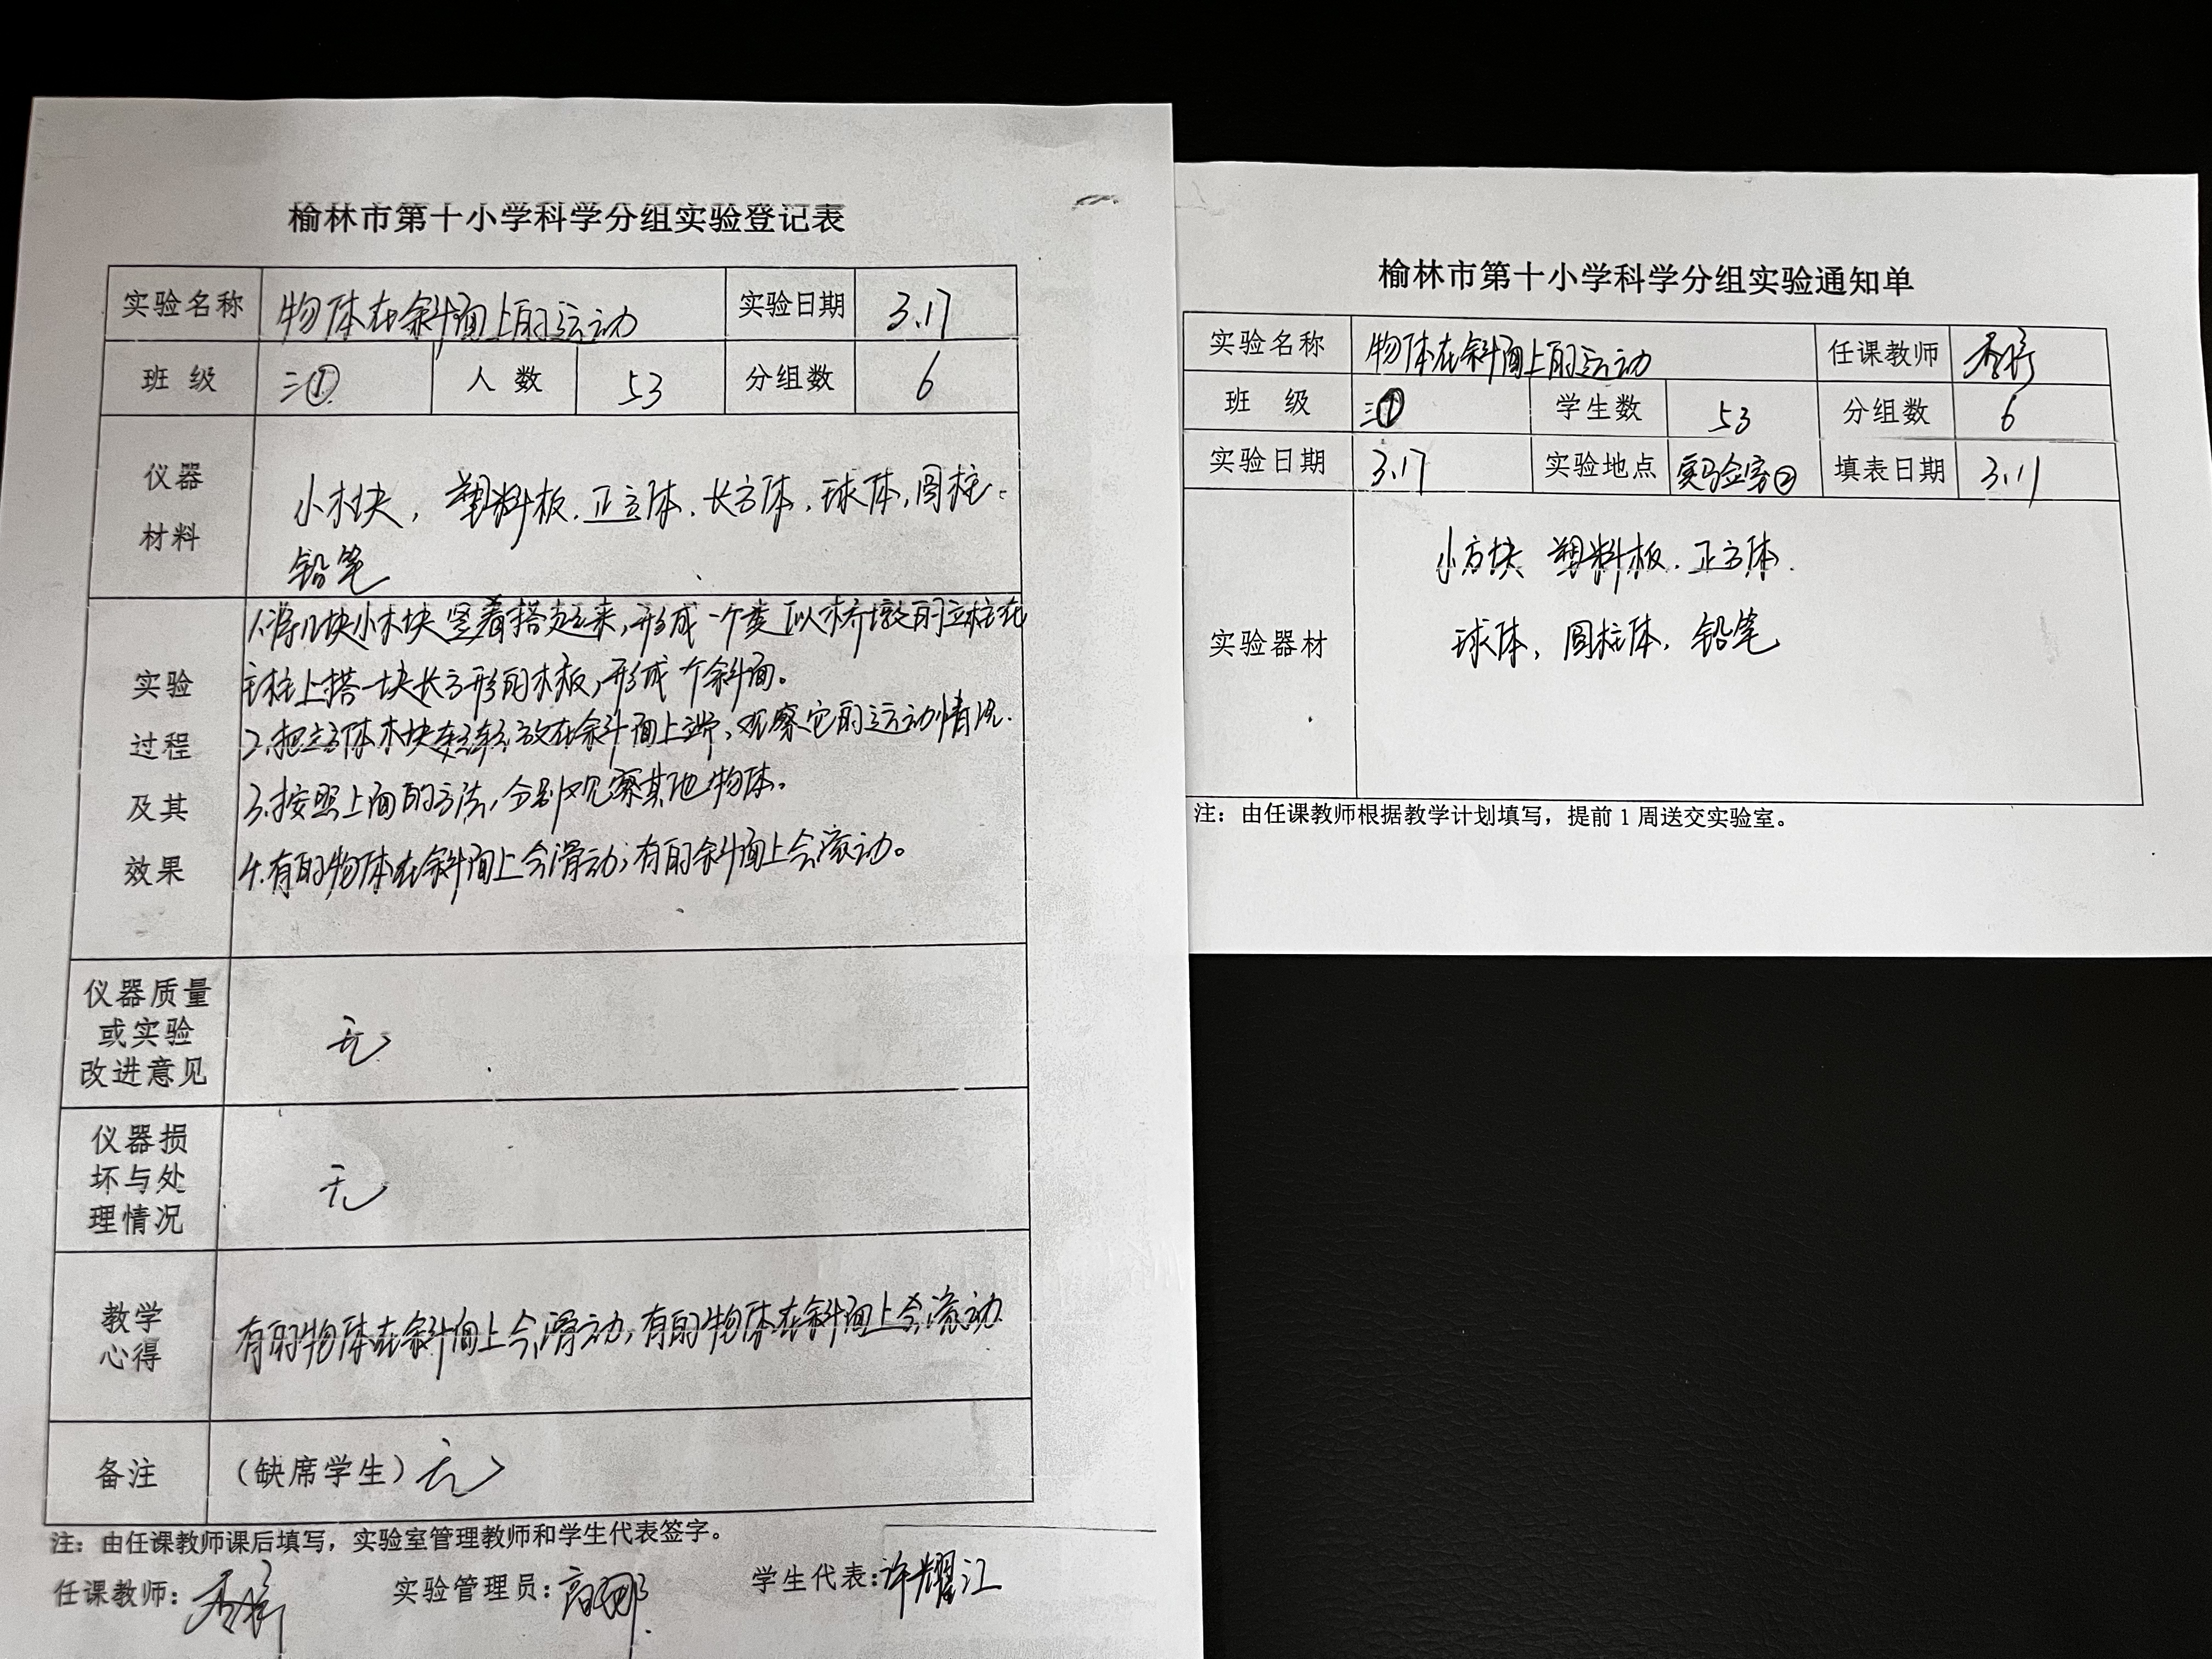 榆林市第十小学科学分组实验登记表
实验名称 物体在斜面上的运动 实验日期 3.17
班级 三① 人数 53 分组数 6
仪器
材料
小木块，塑料板．正方体．长方体．球体，圆柱．
铅笔
实验
过程
及其
效果
1.将几块小木块竖着搭起来，形成一个类似木桥墩的立柱在
立柱上搭一块长方形的木板，形成个斜面。
2.把立方体木块轻轻放在斜面上端，观察它的运动情况．
3.按照上面的方法，分别观察其他物体。
4.有的物体在斜面上会滑动；有的斜面上会滚动。
仪器质量
或实验
改进意见
无
仪器损
坏与处
理情况
无
教学
心得
有的物体在斜面上会滑动，有的物体在斜面上会滚动．
备注 （缺席学生）无
注：由任课教师课后填写，实验室管理教师和学生代表签字。
任课教师： 实验管理员：高娜 学生代表：许耀江
榆林市第十小学科学分组实验通知单
实验名称 物体在斜面上的运动 任课教师
班 级 三① 学生数 53 分组数 6
实验日期 3.17 实验地点 实验室② 填表日期 3.11
实验器材
小方块 塑料板．正方体．
球体，圆柱体，铅笔
注：由任课教师根据教学计划填写，提前1周送交实验室。